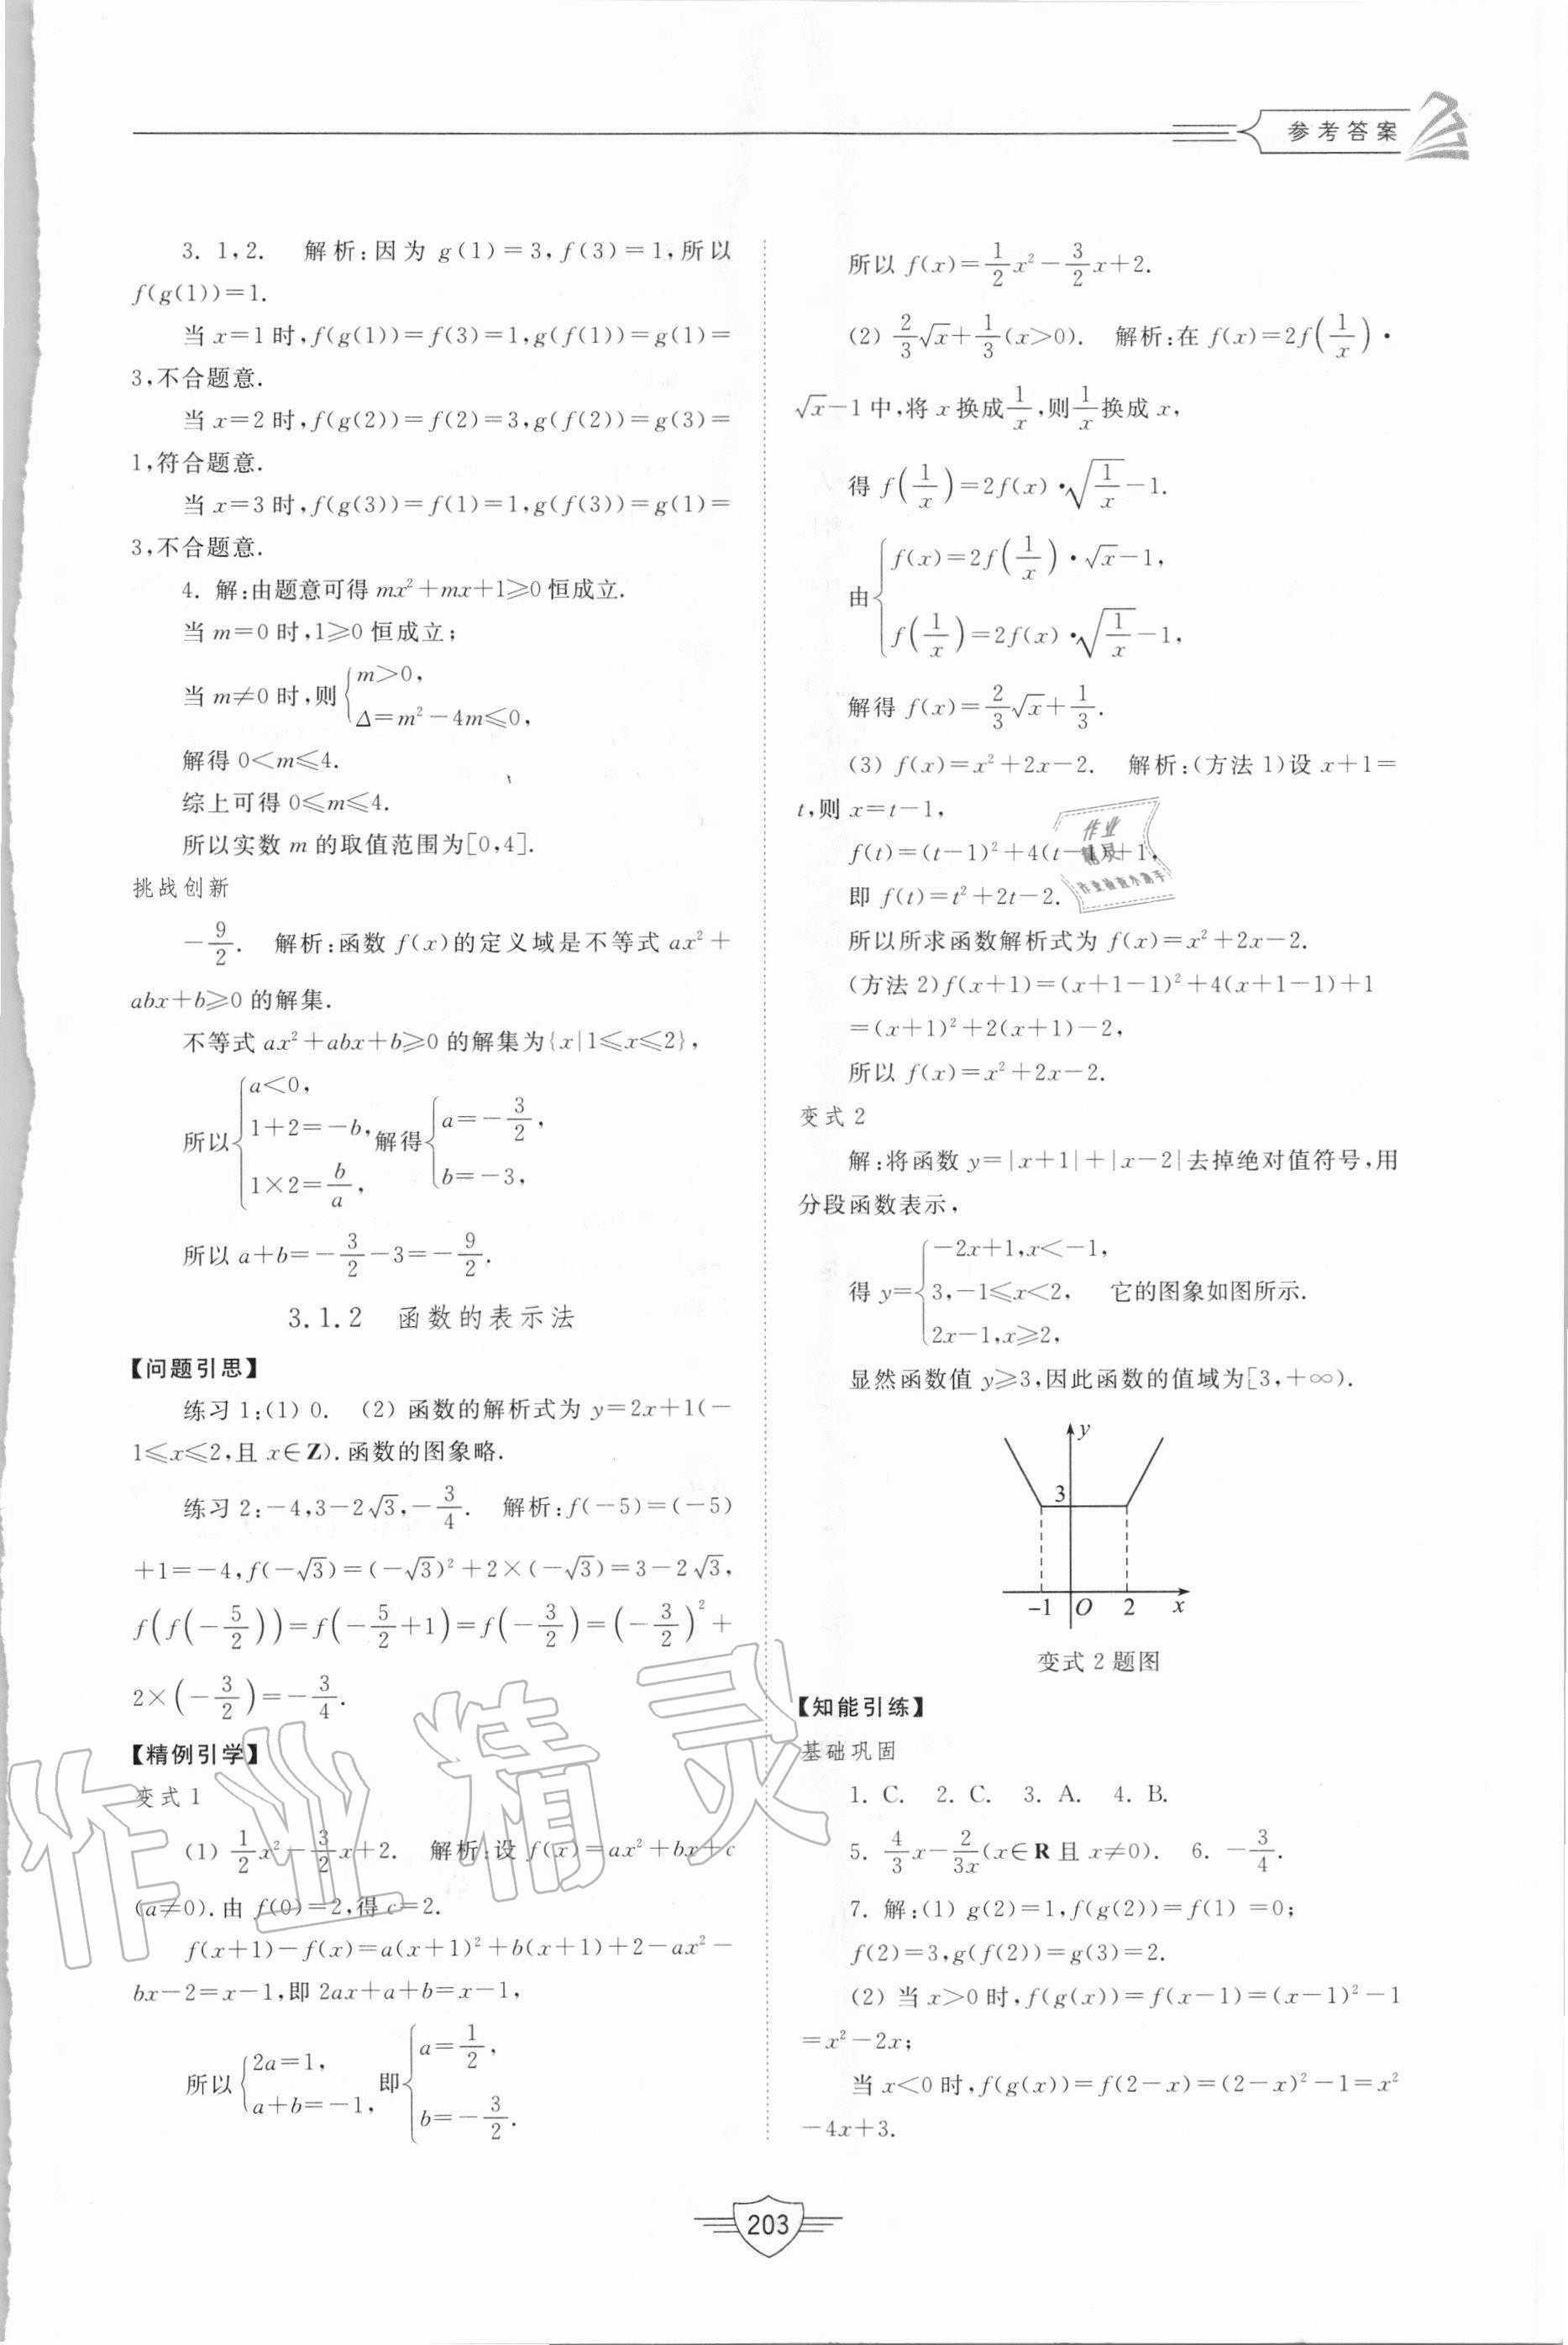 参考答案
3. 1,2. 解析:因为 g(1)=3,f(3)=1,所以
f(g(1))=1.
当 x=1 时,f(g(1))=f(3)=1,g(f(1))=g(1)=
3,不合题意.
当 x=2 时,f(g(2))=f(2)=3,g(f(2))=g(3)=
1,符合题意.
当 x=3 时,f(g(3))=f(1)=1,g(f(3))=g(1)=
3,不合题意.
4. 解:由题意可得 mx²+mx+1⩾0 恒成立.
当 m=0 时,1⩾0 恒成立;
当 m≠0 时,则{m>0,
Δ=m²-4m⩽0,
解得 0<m⩽4.
综上可得 0⩽m⩽4.
所以实数 m 的取值范围为[0,4].
挑战创新
-9/2. 解析:函数 f(x)的定义域是不等式 ax²+
abx+b⩾0 的解集.
不等式 ax²+abx+b⩾0 的解集为{x|1⩽x⩽2},
所以{a<0, 1+2=-b, 1×2=b/a, 解得{a=-3/2, b=-3,
所以 a+b=-3/2-3=-9/2.
3.1.2 函数的表示法
【问题引思】
练习 1:(1) 0. (2) 函数的解析式为 y=2x+1(-
1⩽x⩽2,且 x∈Z). 函数的图象略.
练习 2:-4,3-2√3,-3/4. 解析:f(-5)=(-5)
+1=-4,f(-√3)=(-√3)²+2×(-√3)=3-2√3,
f(f(-5/2))=f(-5/2+1)=f(-3/2)=(-3/2)²+
2×(-3/2)=-3/4.
【精例引学】
变式 1
(1) 1/2x²-3/2x+2. 解析:设 f(x)=ax²+bx+c
(a≠0). 由 f(0)=2,得 c=2.
f(x+1)-f(x)=a(x+1)²+b(x+1)+2-ax²-
bx-2=x-1,即 2ax+a+b=x-1,
所以{2a=1, a+b=-1, 即{a=1/2, b=-3/2.
所以 f(x)=1/2x²-3/2x+2.
(2) 2/3√x+1/3(x>0). 解析:在 f(x)=2f(1/x)·
√x-1 中,将 x 换成1/x,则1/x换成 x,
得 f(1/x)=2f(x)·√(1/x)-1.
由{f(x)=2f(1/x)·√x-1,
f(1/x)=2f(x)·√(1/x)-1,
解得 f(x)=2/3√x+1/3.
(3) f(x)=x²+2x-2. 解析:(方法 1)设 x+1=
t,则 x=t-1,
f(t)=(t-1)²+4(t-1)+1,
即 f(t)=t²+2t-2.
所以所求函数解析式为 f(x)=x²+2x-2.
(方法 2)f(x+1)=(x+1-1)²+4(x+1-1)+1
=(x+1)²+2(x+1)-2,
所以 f(x)=x²+2x-2.
变式 2
解:将函数 y=|x+1|+|x-2|去掉绝对值符号,用
分段函数表示,
得 y={-2x+1,x<-1,
3,-1⩽x<2, 它的图象如图所示.
2x-1,x⩾2,
显然函数值 y⩾3,因此函数的值域为[3,+∞).
y
3
-1 O 2 x
变式 2 题图
【知能引练】
基础巩固
1. C. 2. C. 3. A. 4. B.
5. 4/3x-2/3x(x∈R 且 x≠0). 6. -3/4.
7. 解:(1) g(2)=1,f(g(2))=f(1) =0;
f(2)=3,g(f(2))=g(3)=2.
(2) 当 x>0 时,f(g(x))=f(x-1)=(x-1)²-1
=x²-2x;
当 x<0 时,f(g(x))=f(2-x)=(2-x)²-1=x²
-4x+3.
203
作业精灵
作业
精灵